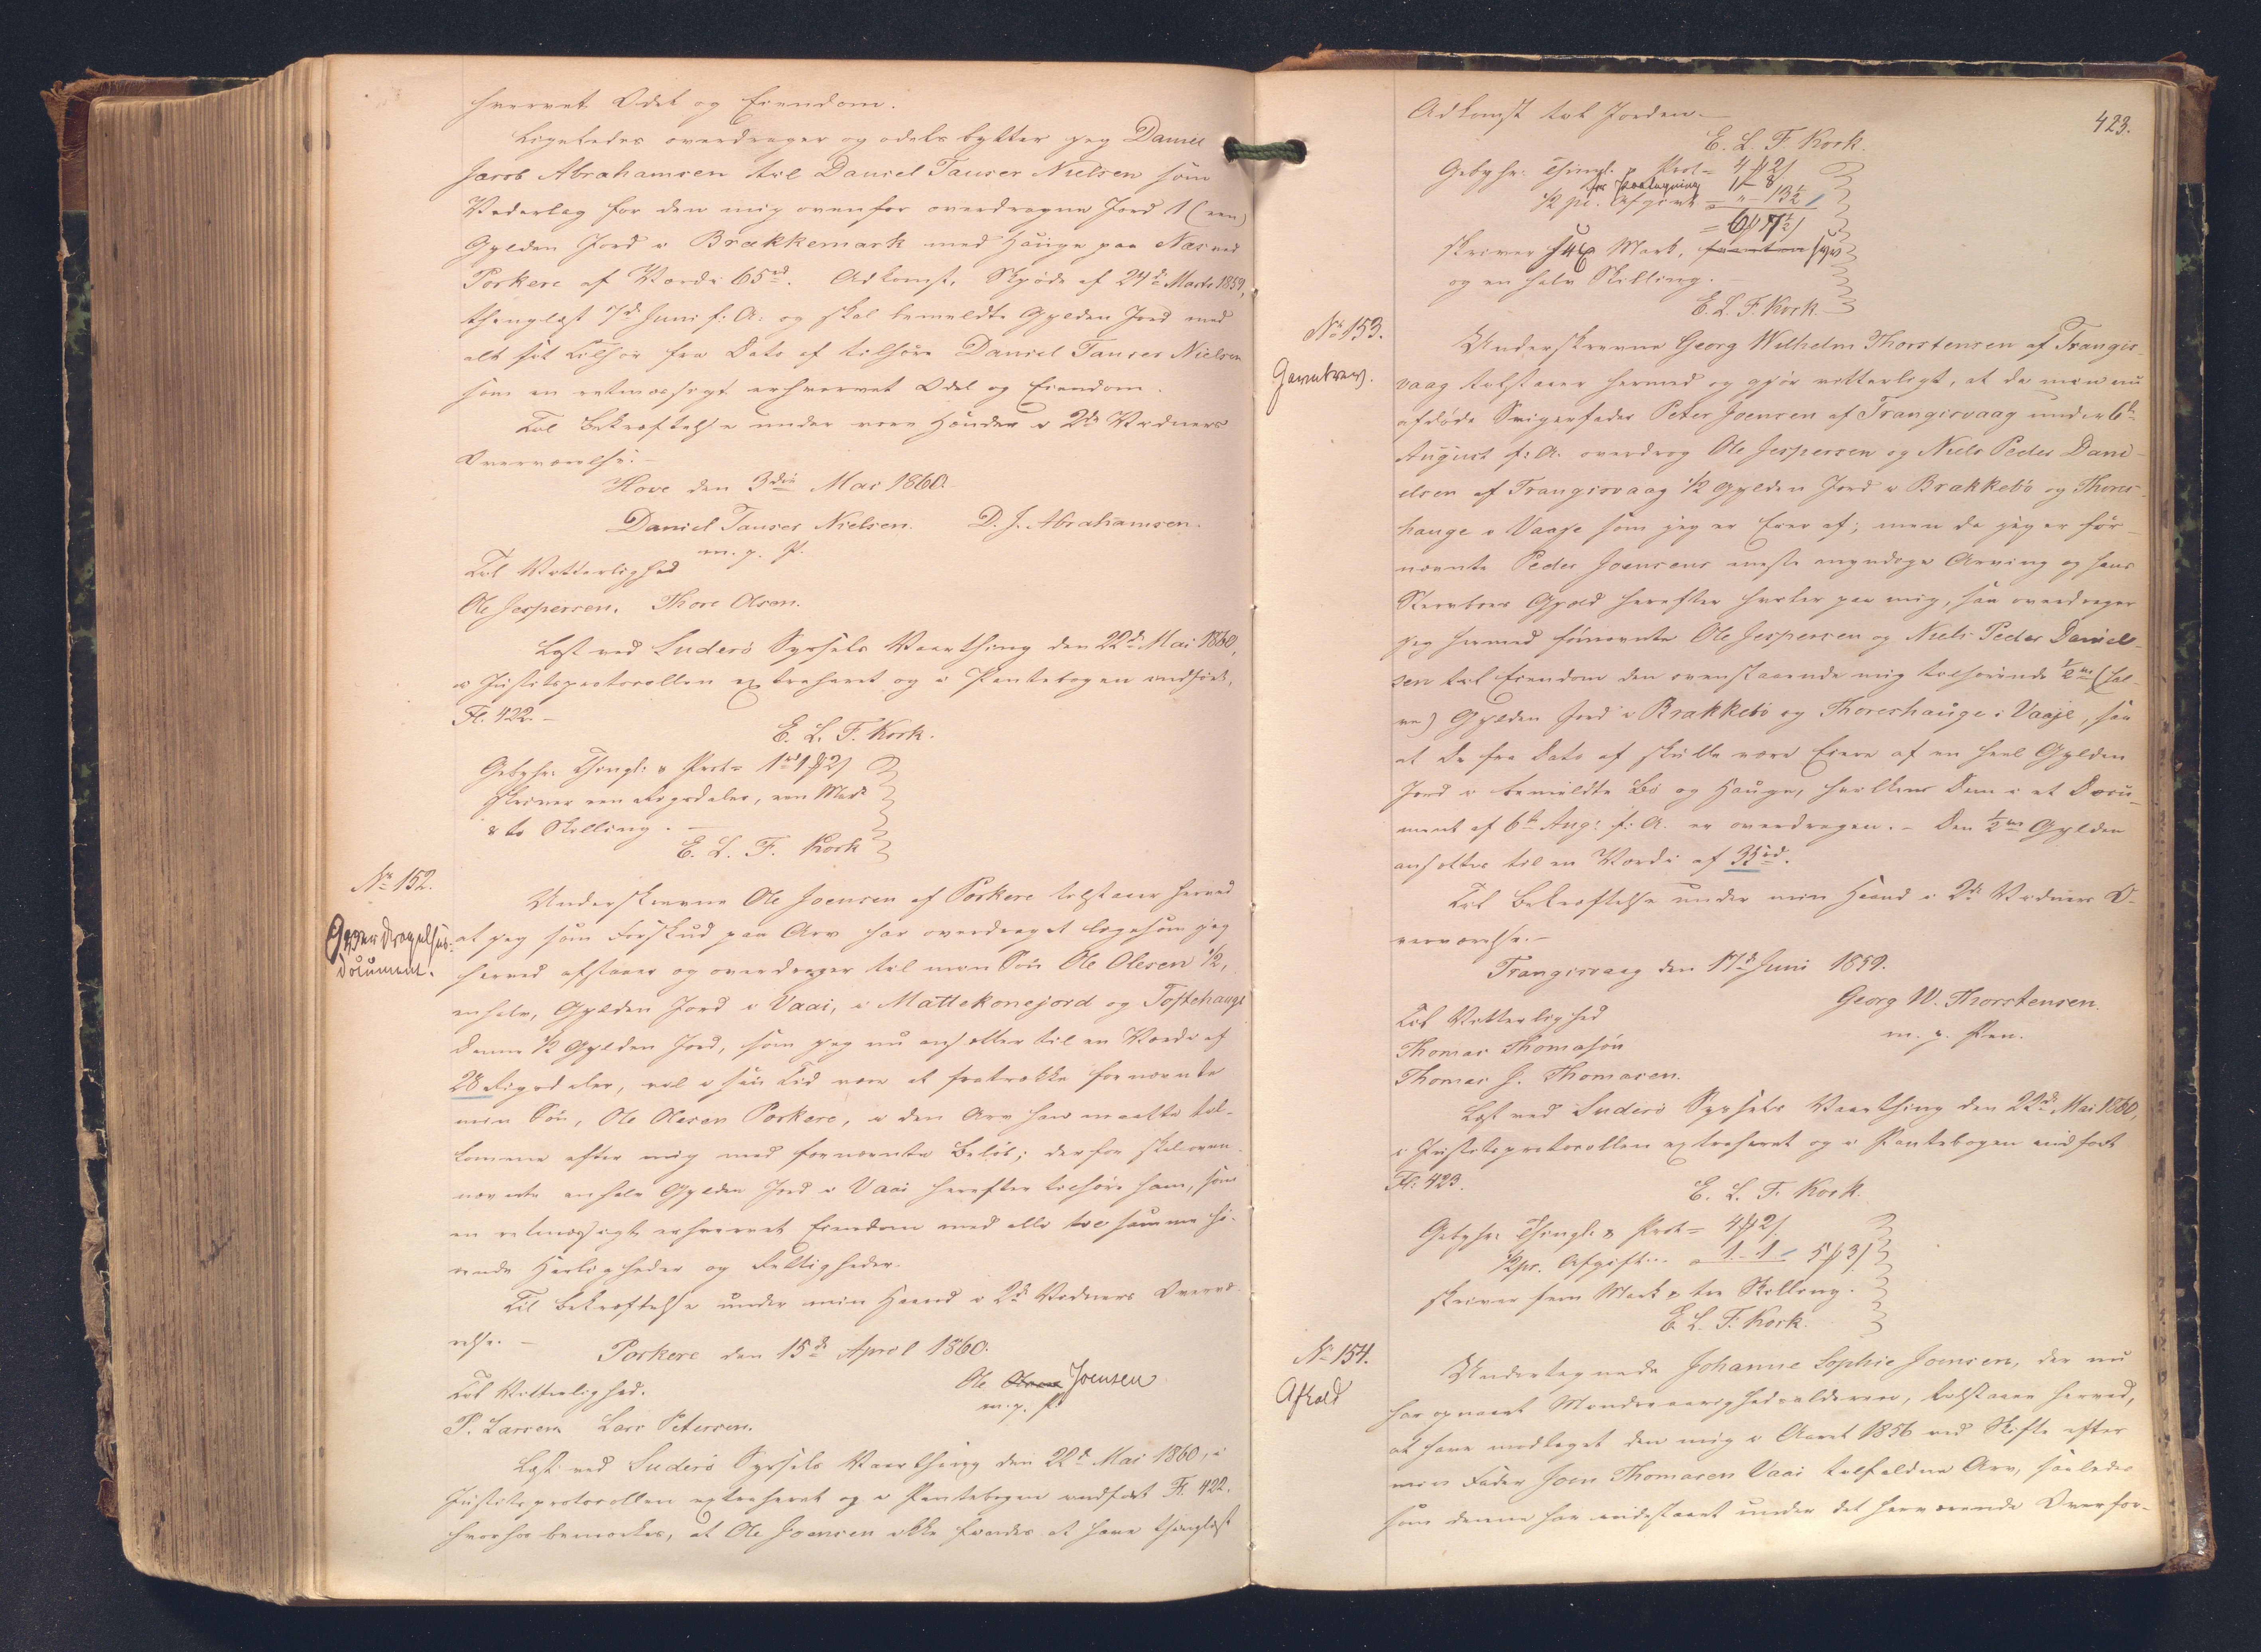 hvervet Odel og Eiendom.
Ligeledes overdrager og odels bytter jeg Daniel
Jacob Abrahamsen til Daniel Tauser Nielsen som
Vederlag for den mig ovenfor overdragne Jord 1 (een)
Gylden Jord i Brækkemark med Hauge paa Næs ved
Porkere af Værdi 65 rd. Adkomst, Skjøde af 24de Marts 1859,
thinglæst 7de Juni s: A: og skal bemeldte Gylden Jord med
alt sit Tilhør fra Dato af tilhøre Daniel Tauser Nielsen
som en retmæssigt erhvervet Odel og Eiendom.
Til Bekræftelse under vore Hænder i 2de Vidners
Overværelse.-
Hove den 3die Mai 1860.-
Daniel Tauser Nielsen. D. J. Abrahamsen.
m. p. P.
Til Vitterlighed
Ole Jespersen. Thore Olsen.
Læst ved Suderö Syssels Vaarthing den 22de Mai 1860,
i Justitsprotocollen extraheret og i Pantebogen indført,
Fl. 422.-
E. L. F. Kork.
Gebyhr: Thingl: & Prot= 1rd 1 ꝳ 2 ʃ
skriver een Rigsdaler, een Mark
& to Skilling.-
E. L. F. Kork
No 152.
Overdragelses-
document.
Underskrevne Ole Joensen af Porkere tilstaaer herved
at jeg som Forskud paa Arv har overdraget ligesom jeg
herved afstaaer og overdrager til min Søn Ole Olesen 1/2,
en halv, Gylden Jord i Vaai, i Mattekonejord og Toftehauge
Denne 1/2 Gylden Jord, som jeg nu ansætter til en Værdi af
28 Rigsdaler, vil i sin Tid være at fratrække fornævnte
min Søn, Ole Olesen Porkere, i den Arv han maatte til-
komme efter mig med fornævnte Beløb; derfor skal oven-
nævnte en halv Gylden Jord i Vaai herefter tilhøre ham, som
en retmæssigt erhvervet Eiendom med alle til samme hö-
rende Herligheder og Rettigheder.
Til Bekræftelse under min Haand i 2de Vidners Overvæ-
relse.-
Porkere den 15de April 1860.
Til Vitterlighed.
Ole Olesen Joensen
m. p. P.
P. Larsen Lars Petersen.
Læst ved Suderö Syssels Vaarthing den 22de Mai 1860, i
Justitsprotocollen extraheret og i Pantebogen indført Fl. 422.
hvorhos bemærkes, at Ole Joensen ikke findes at have thinglæst
423.
Adkomst til Jorden.-
E. L. F. Kork.
Gebyhr: Thingl. & Prot= 4 ꝳ 2 ʃ
for Paategning 1 - 8
1/2 pc. Afgift = " - 13 1/2
= 6 ꝳ 7 1/2 ʃ
skriver sex Mark, syv
og en halv Skilling.-
E. L. F. Kork.
No 153.
Gavebrev.
Underskrevne Georg Wilhelm Thorstensen af Trangis-
vaag tilstaaer herved og gjör vitterligt, at da min nu
afdøde Svigerfader Peter Joensen af Trangisvaag under 6te
August s: A. overdrog Ole Jespersen og Niels Peder Dani-
elsen af Trangisvaag 1/2 Gylden Jord i Brakkebö og Thores-
hauge i Vaaje som jeg er Eier af; men da jeg er for-
nævnte Peder Joensens eneste myndige Arving og hans
Gjæld herefter hviler paa mig, saa overdrager
jeg hermed fornævnte Ole Jespersen og Niels Peder Daniel-
sen til Eiendom den ovenstaaende mig tilhørende 1/2 (hal-
ve) Gylden Jord i Brakkebö og Thoreshauge i Vaaje, saa
at de fra Dato af skulle være Eiere af en heel Gylden
Jord i bemeldte Bö og Hauge, hvilken Dem i et Docu-
ment af 6te Aug: s: A. er overdragen.- Den 1/2 Gylden
ansættes til en Værdi af 35 rd.
Til Bekræftelse under min Haand i 2de Vidners O-
verværelse.-
Trangisvaag den 17de Juni 1859.
Georg W. Thorstensen.
m. p. Pen.
Til Vitterlighed
Thomas Thomasön
Thomas J. Thomasen.
Læst ved Suderö Syssels Vaarthing den 22de Mai 1860,
i Justitsprotocollen extraheret og i Pantebogen indført
Fl: 423.
E. L. F. Kork.
Gebyhr: Thingl: & Prot= 4 ꝳ 2 ʃ
1/2 pc. Afgift... = 1 - 1 5 ꝳ 3 ʃ
skriver fem Mark & tre Skilling.
E. L. F. Kork.
No 154.
Afkald
Undertegnede Johanne Sophie Joensen, der nu
har opnaaet Myndighedsalderen, tilstaaer herved,
at have modtaget den mig i Aaret 1856 ved Skifte efter
min Fader Joen Thomasen Vaai tilfaldne Arv, saaledes
som denne har indestaaet under det herværende Overfor-